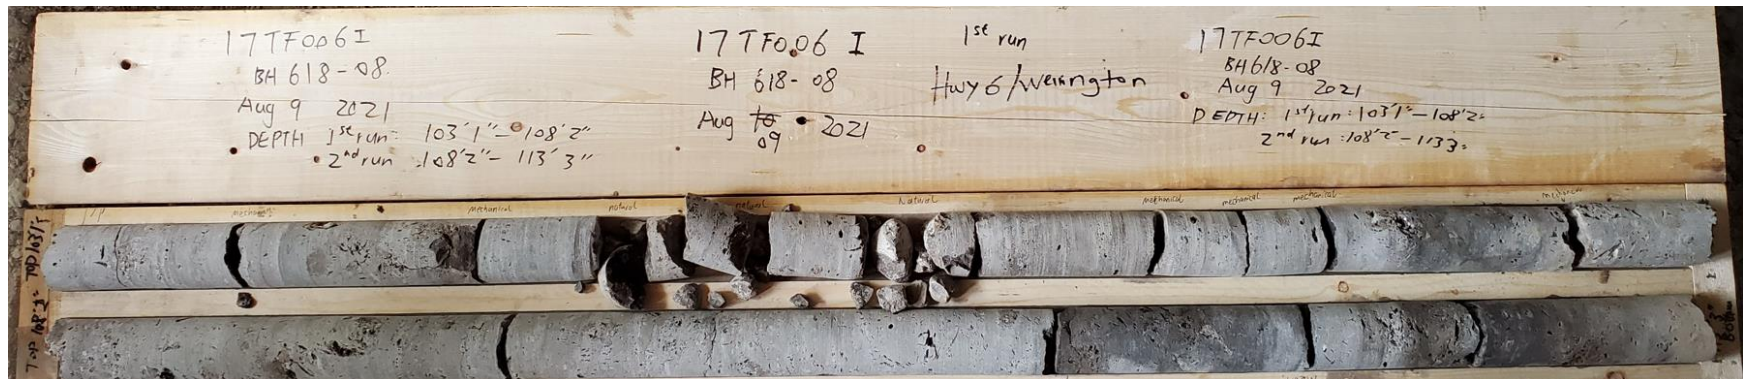 17TF006I
BH 618-08
Aug 9 2021
DEPTH 1st run: 103'1"-108'2"
2nd run :108'2"- 113'3"
17 TF006 I
BH 618-08
Aug 10 2021
09
1st run
Hwy 6/Wellington
17TF006I
BH618-08
Aug 9 2021
DEPTH: 1st run:103'1"-108'2"
2nd run:108'2"-113'3"
mechanical
mechanical
natural
natural
Natural
mechanical
mechanical
mechanical
mechanical